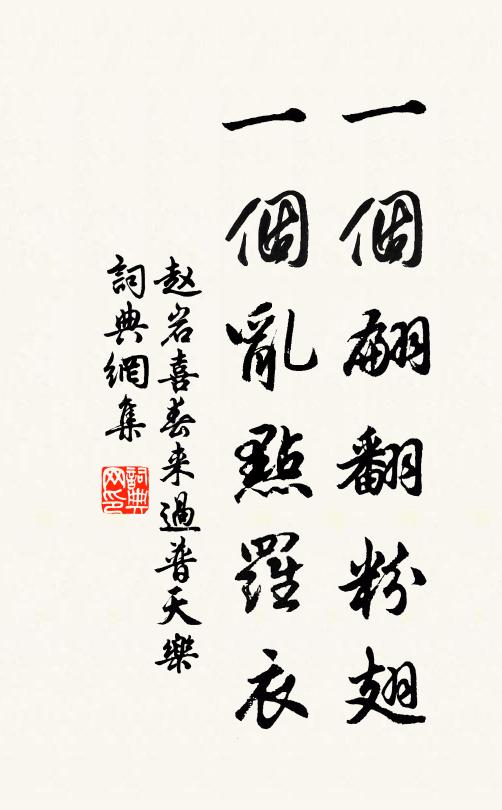 一個翩翻粉翅
一個亂點羅衣
赵岩喜春来過普天樂
詞典網集
詞典网印